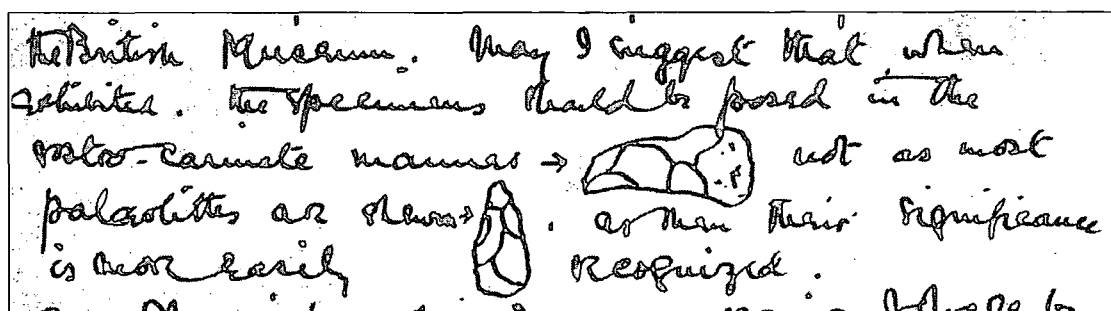 the British Museum. May I suggest that when
exhibited. the specimens should be posed in the
rostro-carinate manner → not as most
palaeoliths are shewn → . as then their significance
is more easily recognized.